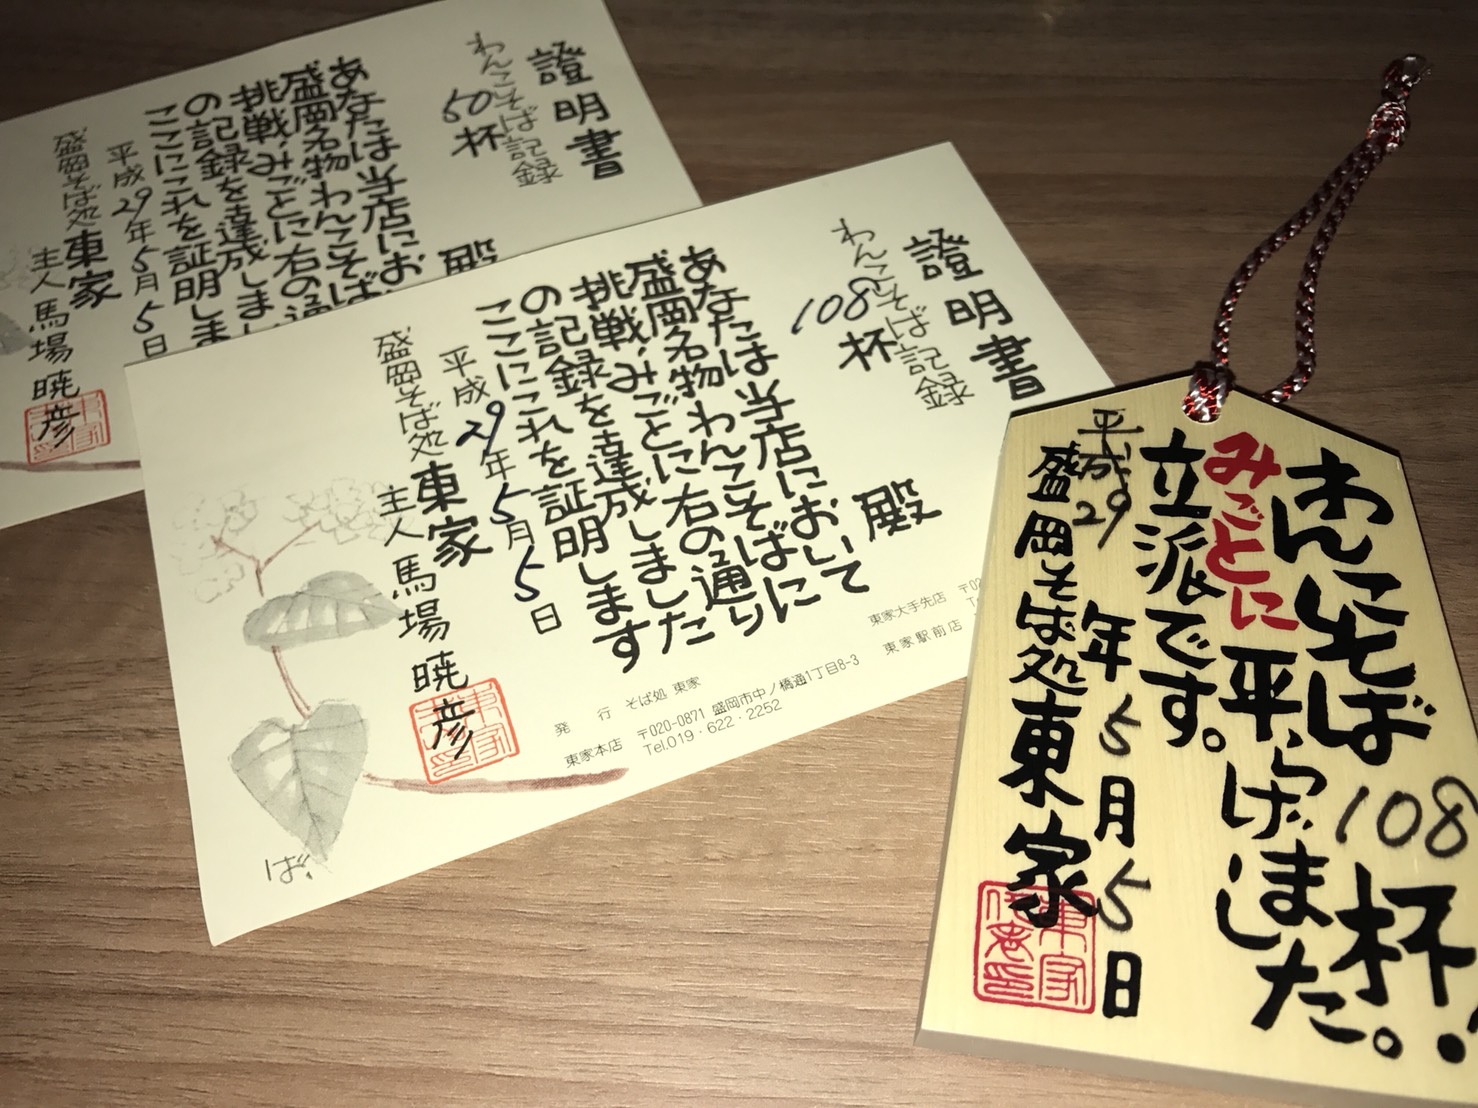 證明書
わんこそば記録
50杯
殿
あなたは当店にお
盛岡名物 わんこそば
挑戦、みごとに右の通
の記録を達成しまし
ここにこれを証明しま
平成29年5月5日
盛岡そば処 東家
主人 馬場暁彦
證明書
わんこそば記録
108杯
殿
あなたは当店において
盛岡名物 わんこそばに
挑戦、みごとに右の通り
の記録を達成しました
ここにこれを証明します
平成29年5月5日
盛岡そば処 東家
主人 馬場暁彦
ば
発 行 そば処 東家
東家本店 〒020-0871 盛岡市中ノ橋通1丁目8-3
Tel.019・622・2252
東家大手先店 〒02
東家駅前店
わんこそば108杯!
みごとに平らげました。
立派です。
平成29年5月5日
盛岡そば処 東家